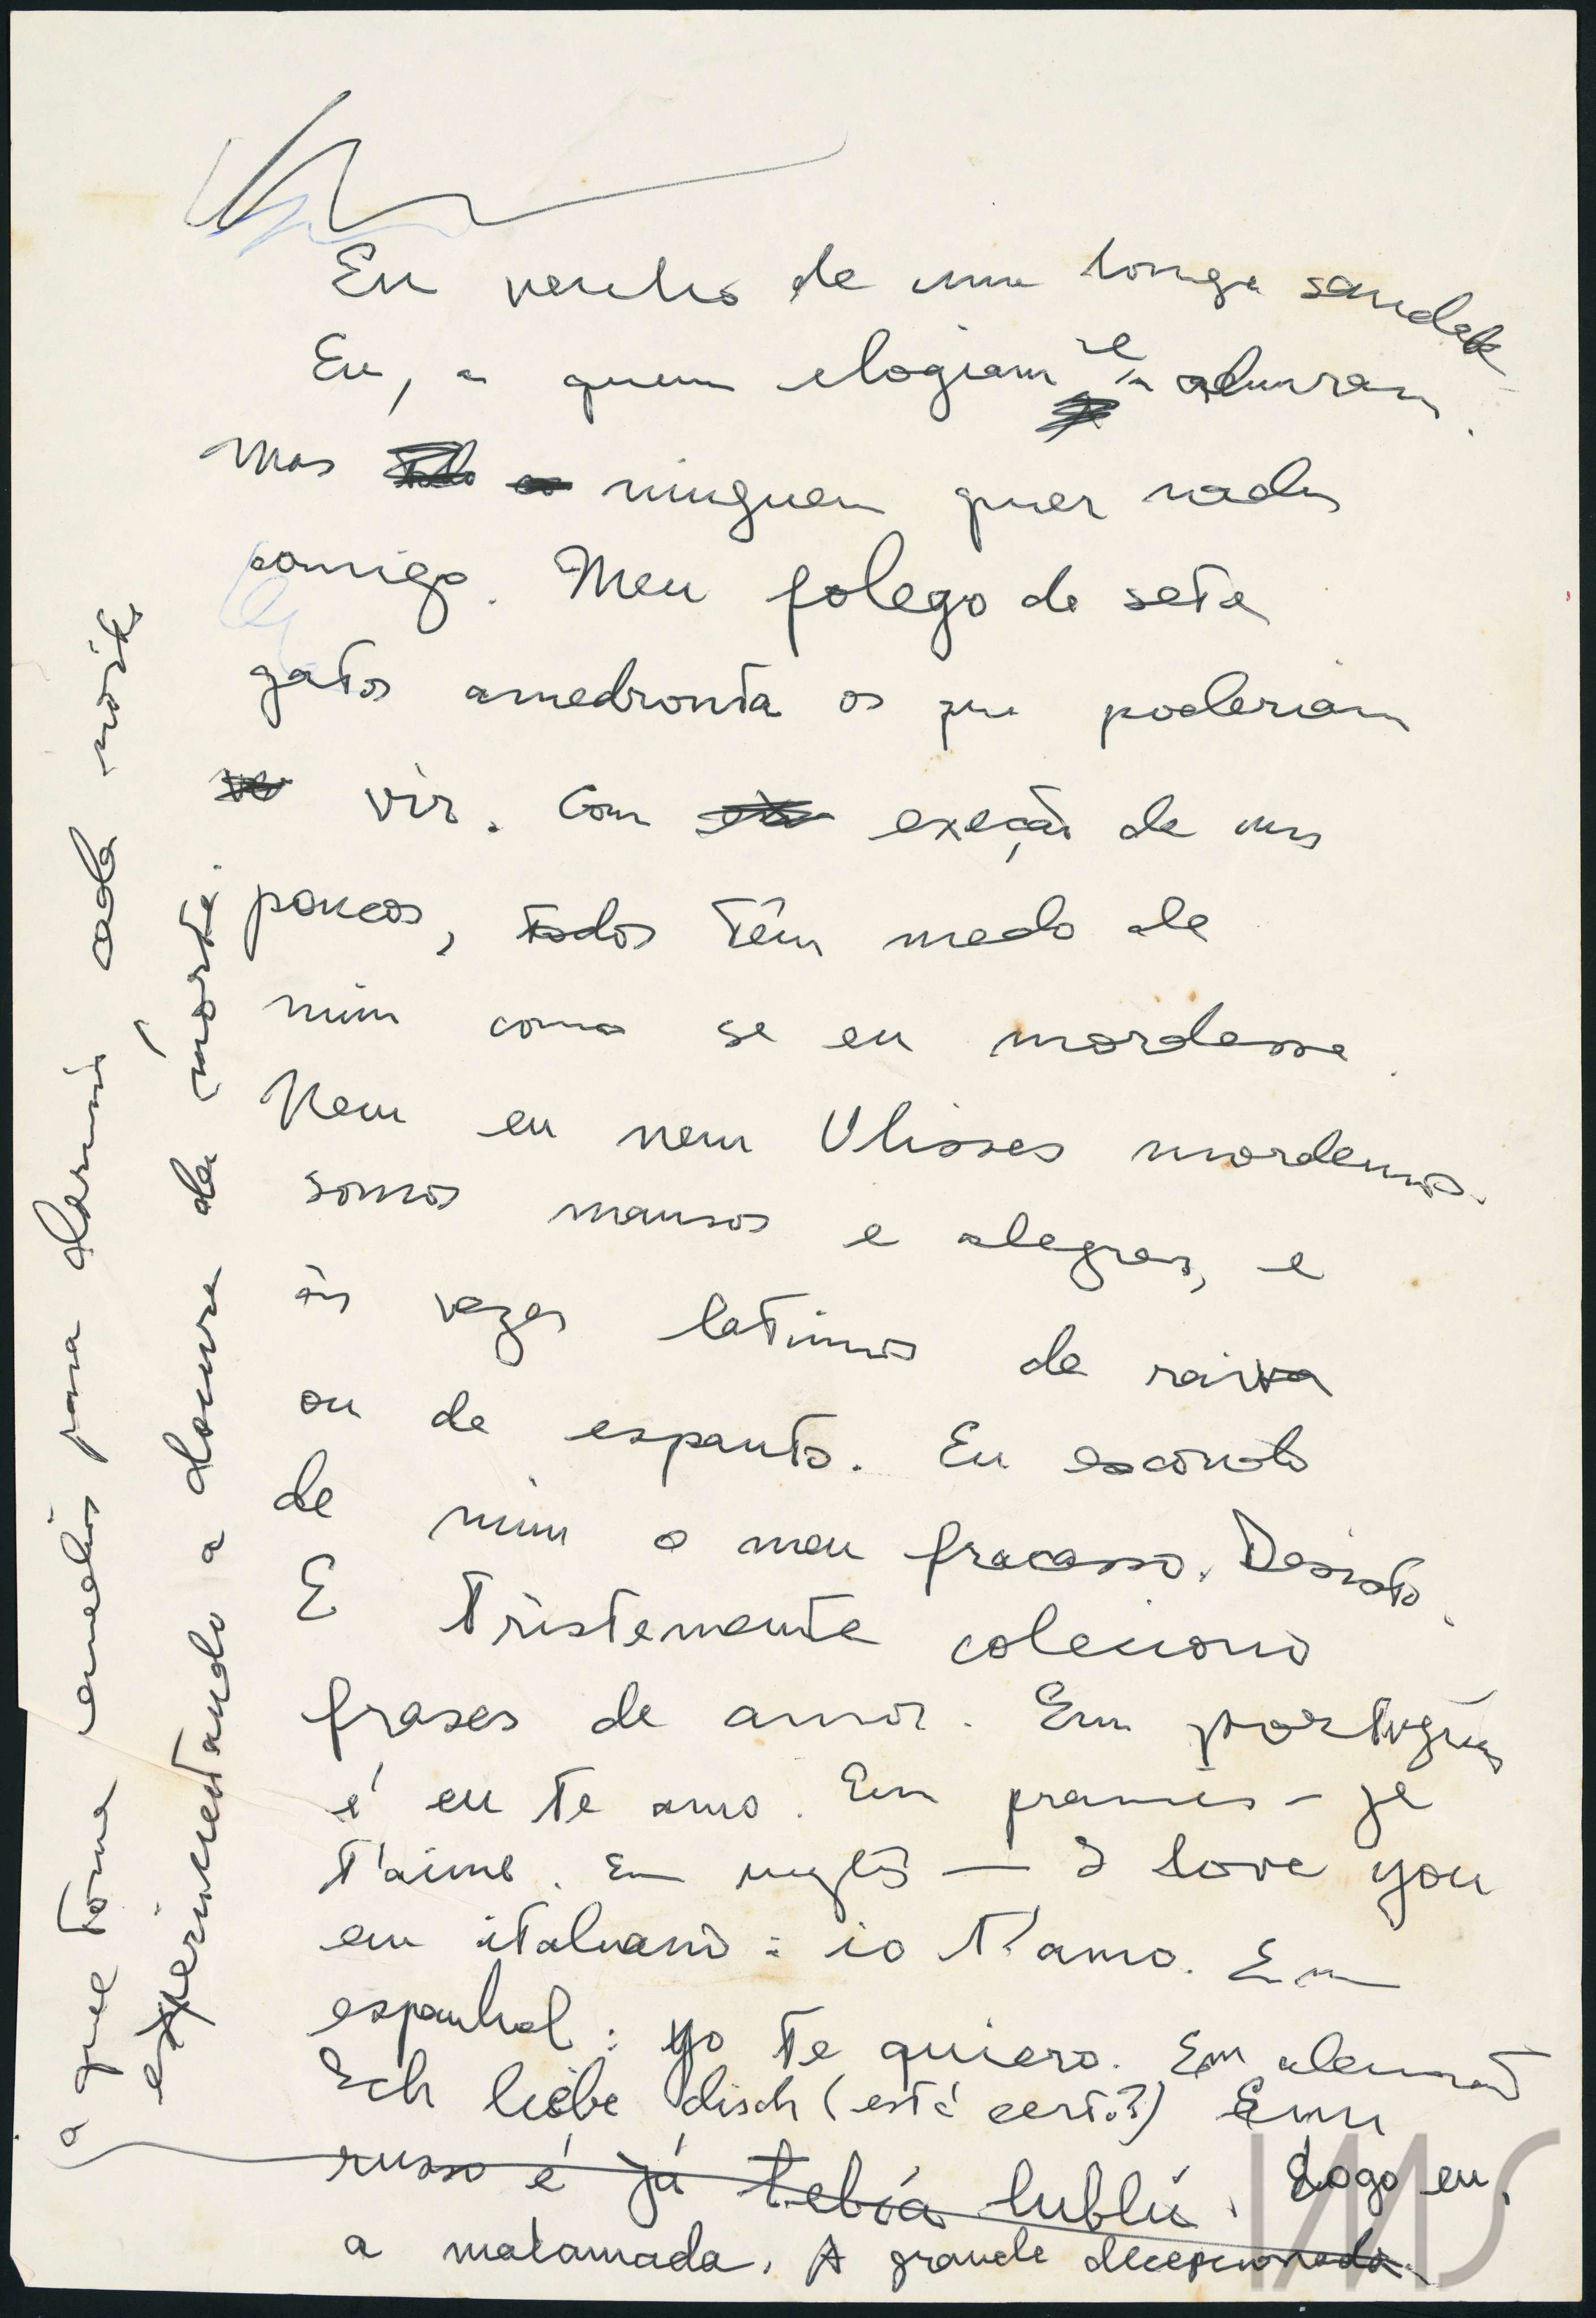 Eu venho de uma longa saudade
Eu, a quem elogiam e adoram.
Mas ninguem quer nada
comigo. Meu folego de sete
gatos amedronta os que poderiam
vir. Com exeção de uns
poucos, todos têm medo de
mim como se eu mordesse.
Nem eu nem Ulisses mordemos.
somos mansos e alegres, e
às vezes latimos de raiva
ou de espanto. Eu escondo
de mim o meu fracasso. Desisto.
E tristemente coleciono
frases de amor. Em português
é eu te amo. Em francês - je
t'aime. Em inglês — I love you
em italiano : io t'amo. Em
espanhol : yo te quiero. Em alemão
Ich liebe disch (está certo?) Em
russo é já tebiá lublú. Logo eu,
a malamada. A grande decepcionada
a que toma remédios para dormir cada noite
experimentando a doçura da morte.
IMS